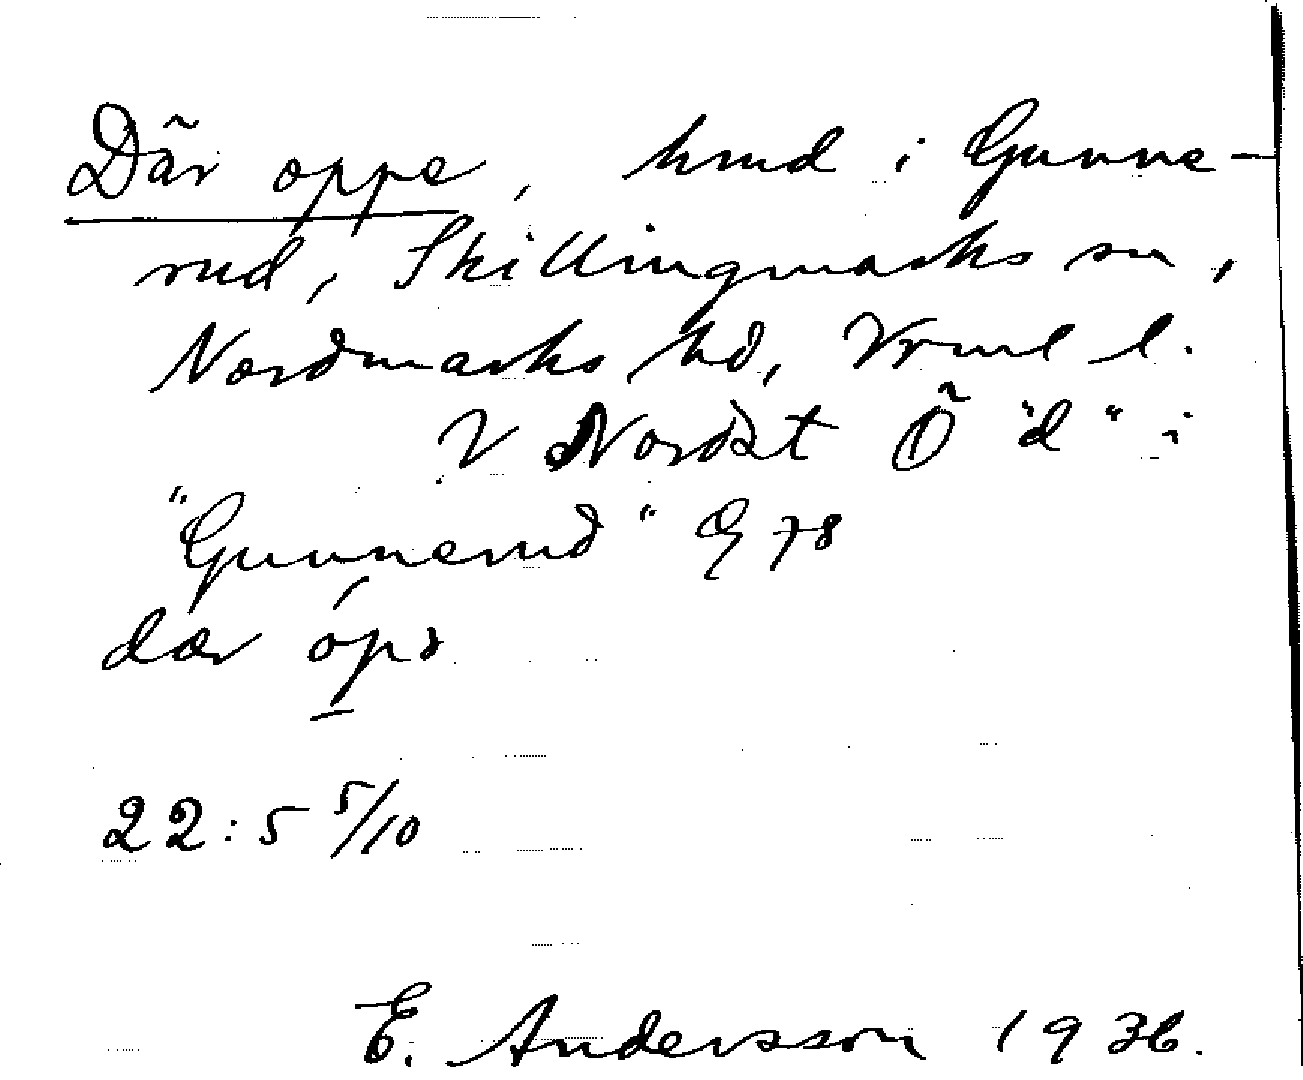 Där oppe, hmd i Gunne-
rud, Skillingmarks sn,
Nordmarks hd, Vrml l.
V Nordst Ö "d" i
"Gunnerud" E 78
dær ópə
22:5 5/10
E. Andersson 1936.